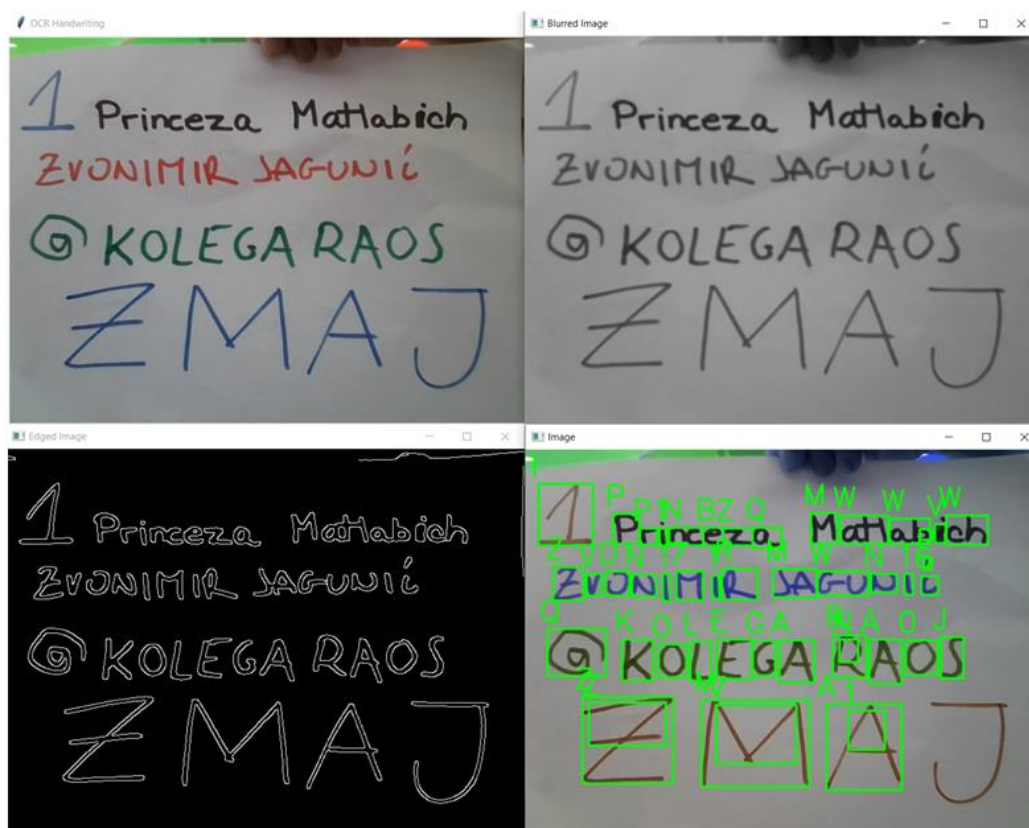 OCR Handwriting
1 Princeza Matlabich
ZVONIMIR JAGUNIĆ
@ KOLEGA RAOS
ZMAJ
Blurred Image
1 Princeza Matlabich
ZVONIMIR JAGUNIĆ
@ KOLEGA RAOS
ZMAJ
Edged Image
1 Princeza Matlabich
ZVONIMIR JAGUNIĆ
@ KOLEGA RAOS
ZMAJ
Image
1 Princeza Matlabich
ZVONIMIR JAGUNIĆ
K O L E G A
@ KOLEGA RAOS
ZMAJ